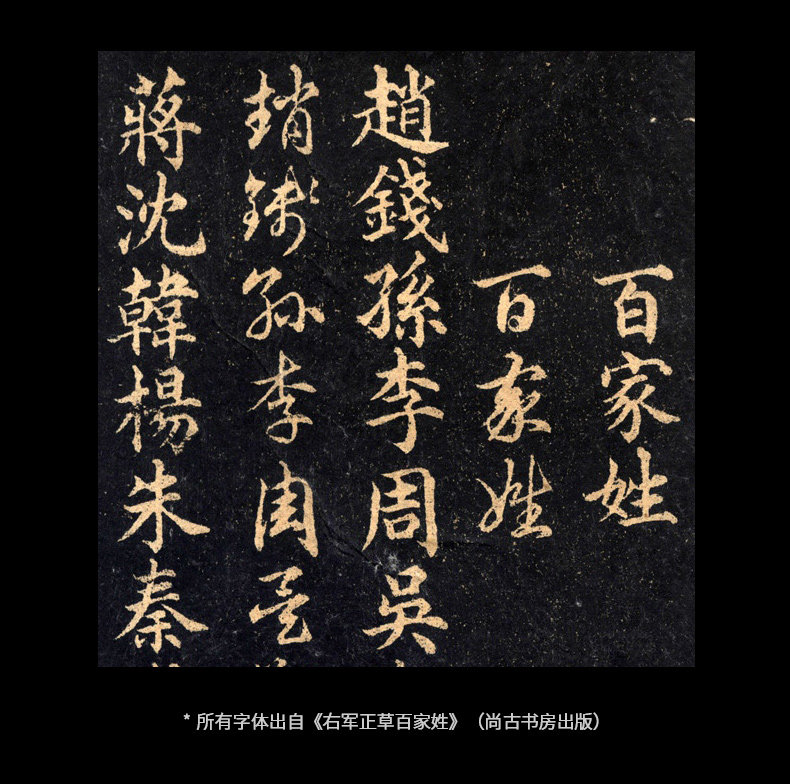 百家姓
百家姓
趙錢孫李周吳
趙錢孫李周吳
蔣沈韓楊朱秦
* 所有字体出自《右军正草百家姓》（尚古书房出版）